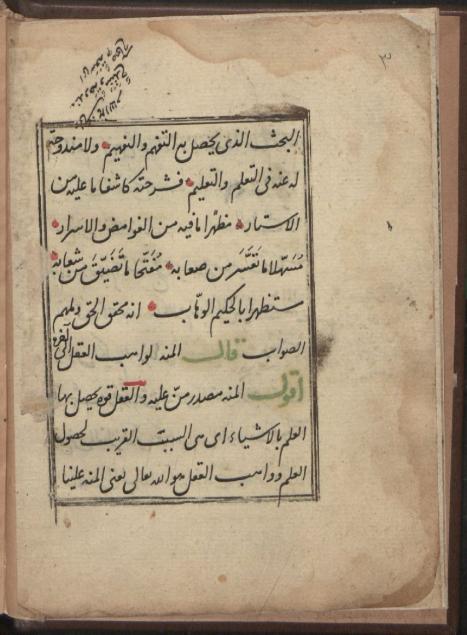 ٣
البحث الذى يحصل به التفهم والتفهيم ولا مندوحة
له عنه فى التعلم والتعليم فشرحته كاشفا ما عليه من
الاستار مظهرا ما فيه من الغوامض والاسرار
مسهلا ما تعسر من صعابه مفتحا ما تضيق من شعابه
مستظهرا بالحكيم الوهاب انه محقق الحق وملهم
الصواب قال المنه لواهب العقل
اقول المنه مصدر من عليه والعقل قوه يحصل بها
العلم بالاشياء اى هى السبب القريب لحصول
العلم وواهب العقل هو الله تعالى يعنى المنه علينا